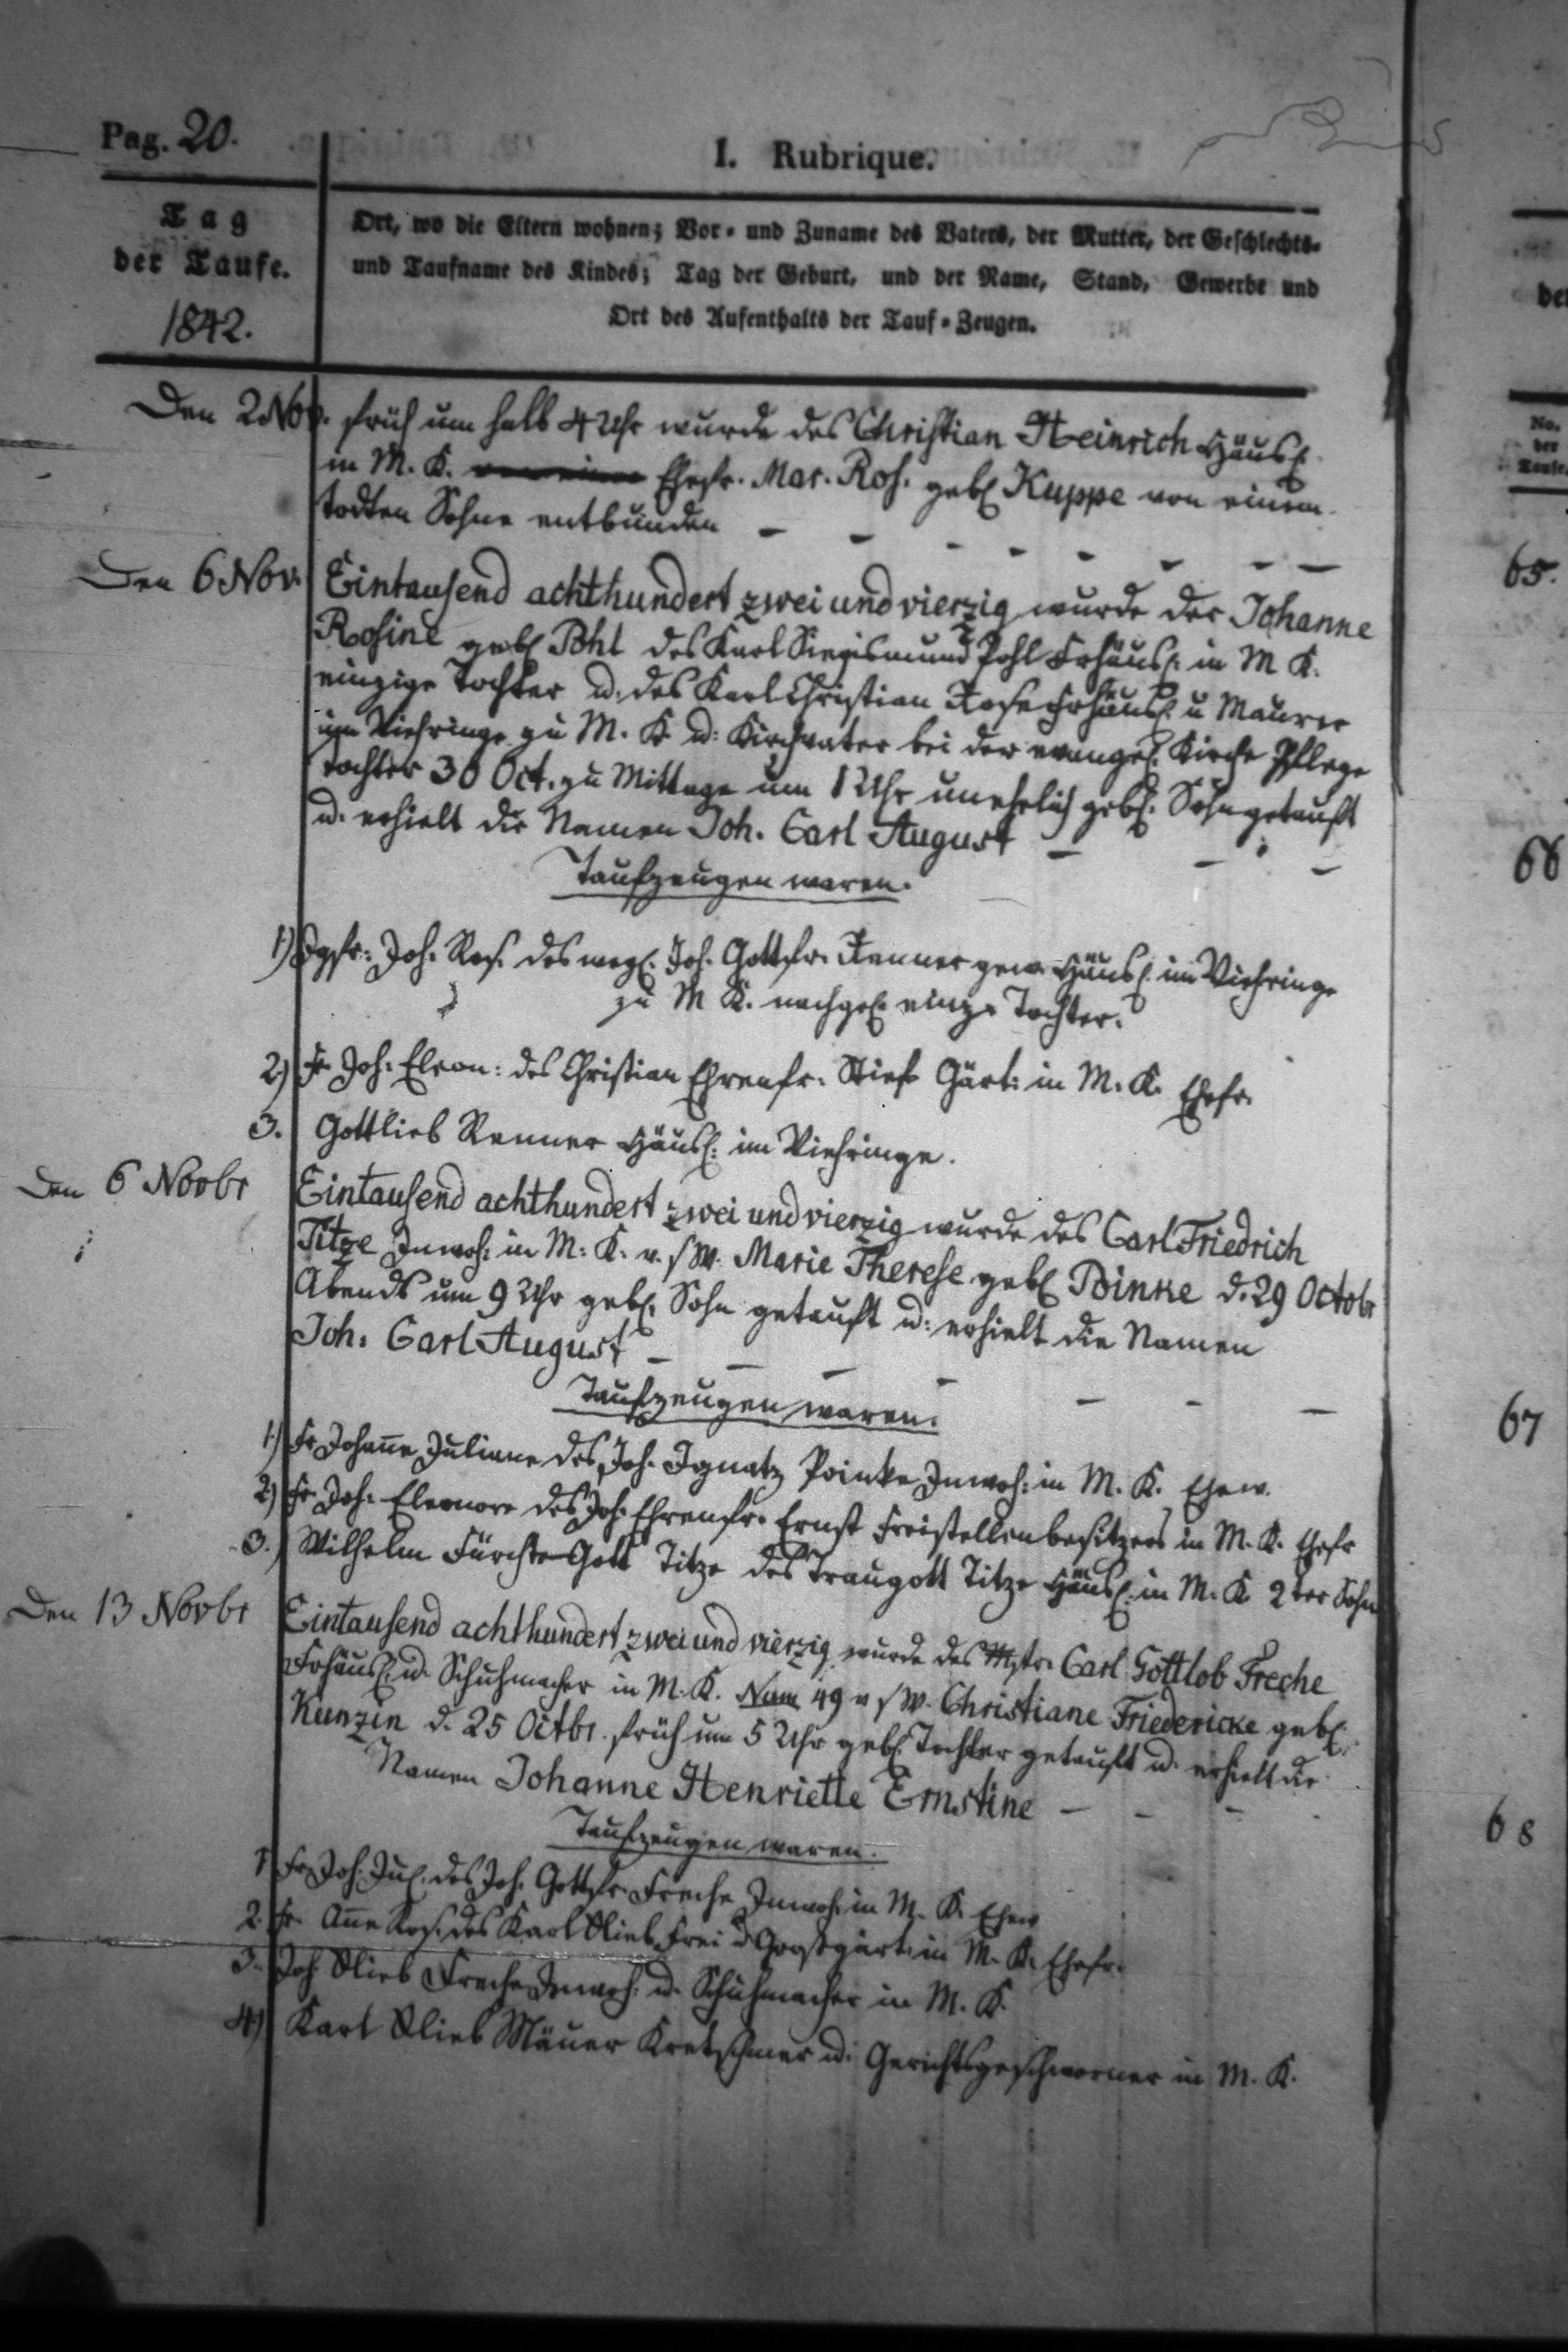 Pag. 20.
I. Rubrique.
Tag
der Taufe.
1842.
Ort, wo die Eltern wohnen; Vor- und Zuname des Vaters, der Mutter, der Geschlechts-
und Taufname des Kindes; Tag der Geburt, und der Name, Stand, Gewerbe und
Ort des Aufenthalts der Tauf-Zeugen.
Den 2 Nov. früh um halb 4 Uhr wurde des Christian Heinrich Häusl.
in M. K. Ehefr. Mar. Ros. geb. Kuppe von einem
todten Sohne entbunden
65.
Den 6 Nov. Eintausend achthundert zwei und vierzig wurde der Johanne
Rosine geb. Pohl des Karl Siegismund Pohl Frhäusl. in M K.
einzige Tochter u. des Karl Christian Frhäusl. u Maurer
im Viehringe zu M. K. u: Kirchvater bei der evangel. Kirche Pflege
tochter 30 Oct. zu Mittage um 1 Uhr unehelich geb. Sohn getauft
u. erhielt die Namen Joh. Carl August
66
Taufzeugen waren.
1) Jgfr: Joh. Ros. des weyl. Joh. Gottfr. Renner gew. Häusl. im Viehringe
zu M K. nachgel. einz. Tochter.
2) Fr Joh. Eleon: des Christian Ehrenfr. Gärt: in M. K. Ehefr.
3. Gottlieb Renner Häusl: im Viehringe.
Den 6 Novbr Eintausend achthundert zwei und vierzig wurde des Carl Friedrich
Titze Inwoh: in M: K. v. s W. Marie Therese geb. Poinke d. 29 Octobr
Abends um 9 Uhr geb. Sohn getauft u: erhielt die Namen
Joh. Carl August
67
Taufzeugen waren.
1) Fr Johane Juliane des Joh. Ignatz Poinke Inwoh: in M. K. Ehew.
2) Fr. Joh. Eleonore des Joh. Ehrenfr. Ernst Freistellenbesitzers in M. K. Ehefr
3. Wilhelm Fürchte Gott Titze des Traugott Titze Häusl. in M. K. 2ter Sohn
Den 13 Novbr Eintausend achthundert zwei und vierzig wurde des Mstr. Carl Gottlob Freche
Frhäusl. u. Schuhmacher in M. K. Num 49 v s W. Christiane Friedericke geb.
Kunzin d. 25 Octbr. früh um 5 Uhr geb. Tochter getauft u. erhielt die
Namen Johanne Henriette Ernstine
68
Taufzeugen waren.
1 Fr. Joh. Jul. des Joh. Gottfr. Freche Inwoh. in M. K. Ehew
2. Fr. Ane Ros. des Karl Glieb Frei u Großgärt: in M. K. Ehefr.
3. Joh Glieb Freche Inwoh. u. Schuhmacher in M. K.
4) Karl Glieb Mäuer Kretschmer u. Gerichtsgeschworner in M. K.